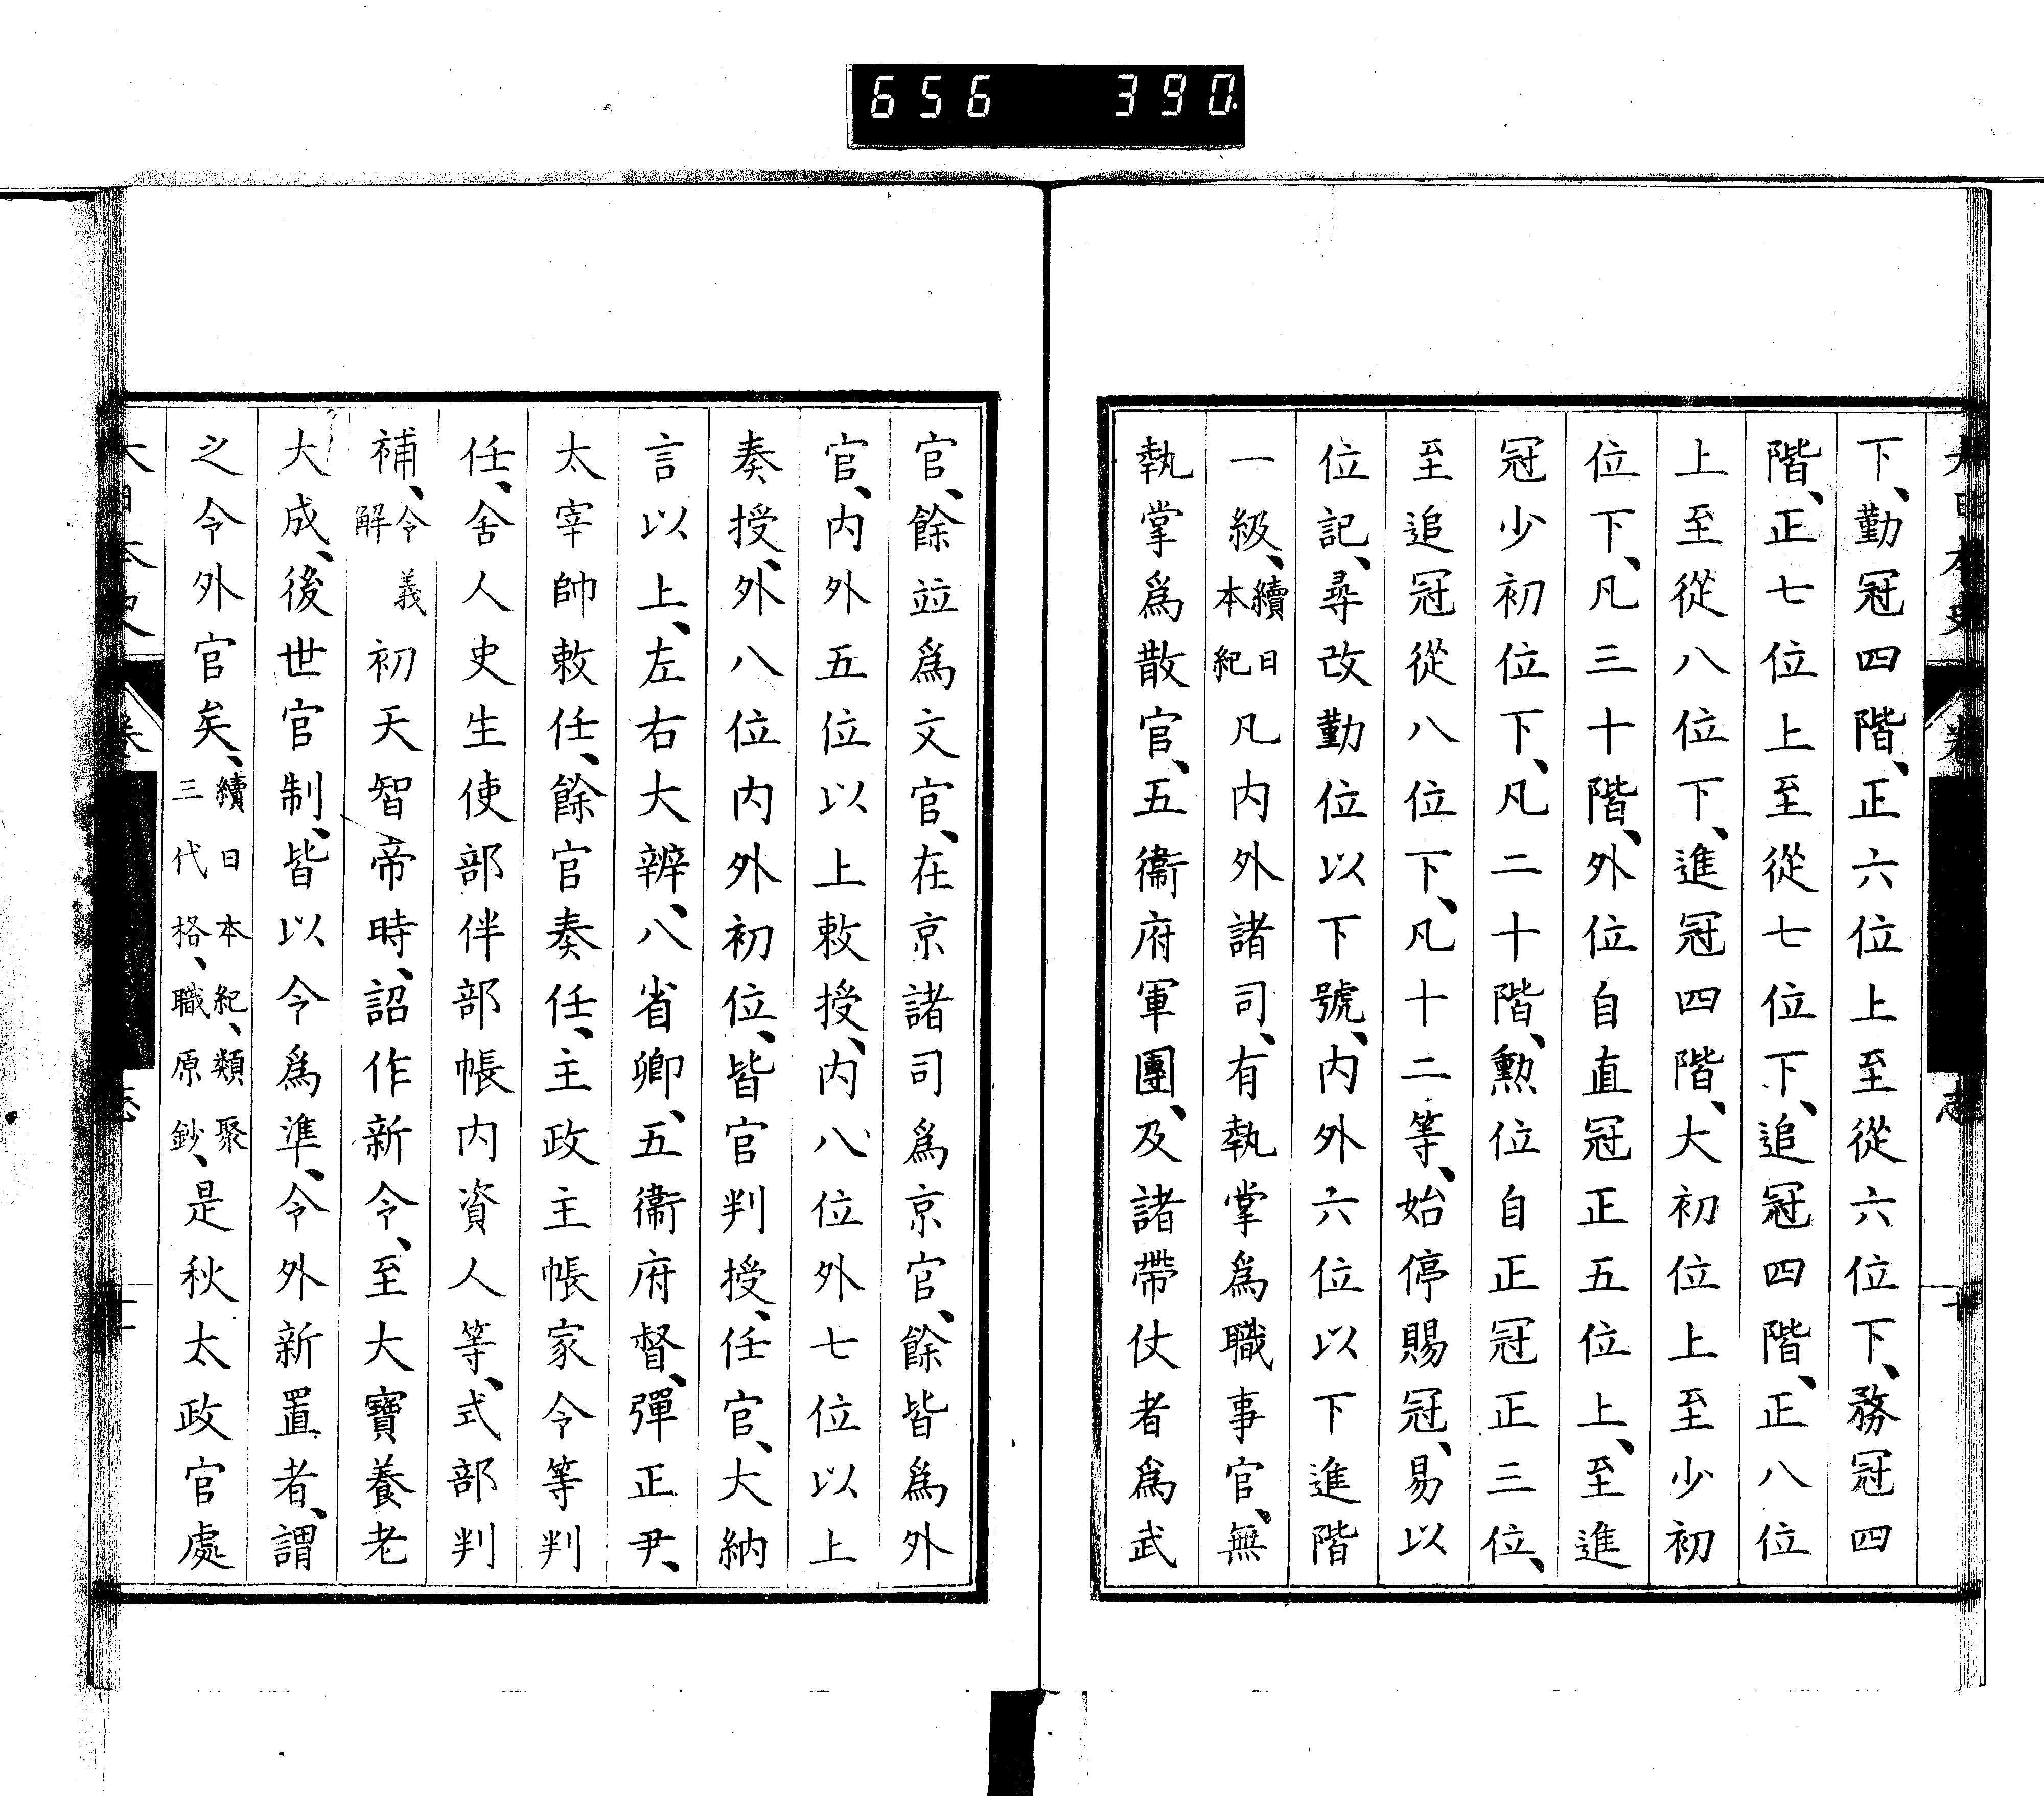 656 390
大日本史 卷 志
下、勤冠四階、正六位上至從六位下、務冠四
階、正七位上至從七位下、追冠四階、正八位
上至從八位下、進冠四階、大初位上至少初
位下、凡三十階、外位自直冠正五位上、至進
冠少初位下、凡二十階、勲位自正冠正三位、
至追冠從八位下、凡十二等、始停賜冠、易以
位記、尋改勤位以下號、内外六位以下進階
一級、續日本紀凡内外諸司、有執掌爲職事官、無
執掌爲散官、五衞府軍團、及諸帶仗者爲武
官、餘竝爲文官、在京諸司爲京官、餘皆爲外
官、内外五位以上敕授、内八位外七位以上
奏授、外八位内外初位、皆官判授、任官、大納
言以上、左右大辨、八省卿、五衞府督、彈正尹、
太宰帥敕任、餘官奏任、主政主帳家令等判
任、舍人史生使部伴部帳内資人等、式部判
補、令義解初天智帝時、詔作新令、至大寶養老
大成、後世官制、皆以令爲準、令外新置者、謂
之令外官矣、續日本紀、類聚三代格、職原鈔、是秋太政官處
大日本史 卷 志